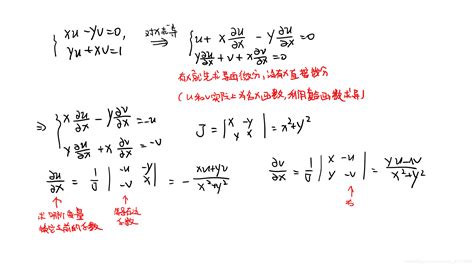 { xu - yv = 0, yu + xv = 1
对x求导 ⇒
{ u + x ∂u/∂x - y ∂v/∂x = 0
y ∂u/∂x + v + x ∂v/∂x = 0
有x就先求导再微分，没有x直接微分
(u和v实际上为含x函数，利用复合函数求导)
⇒ { x ∂u/∂x - y ∂v/∂x = -u
y ∂u/∂x + x ∂v/∂x = -v
J = | x -y y x | = x²+y²
∂u/∂x = 1/J | -u -y -v x | = - xu+yv / x²+y²
∂v/∂x = 1/J | x -u y -v | = yu-xv / x²+y²
系数